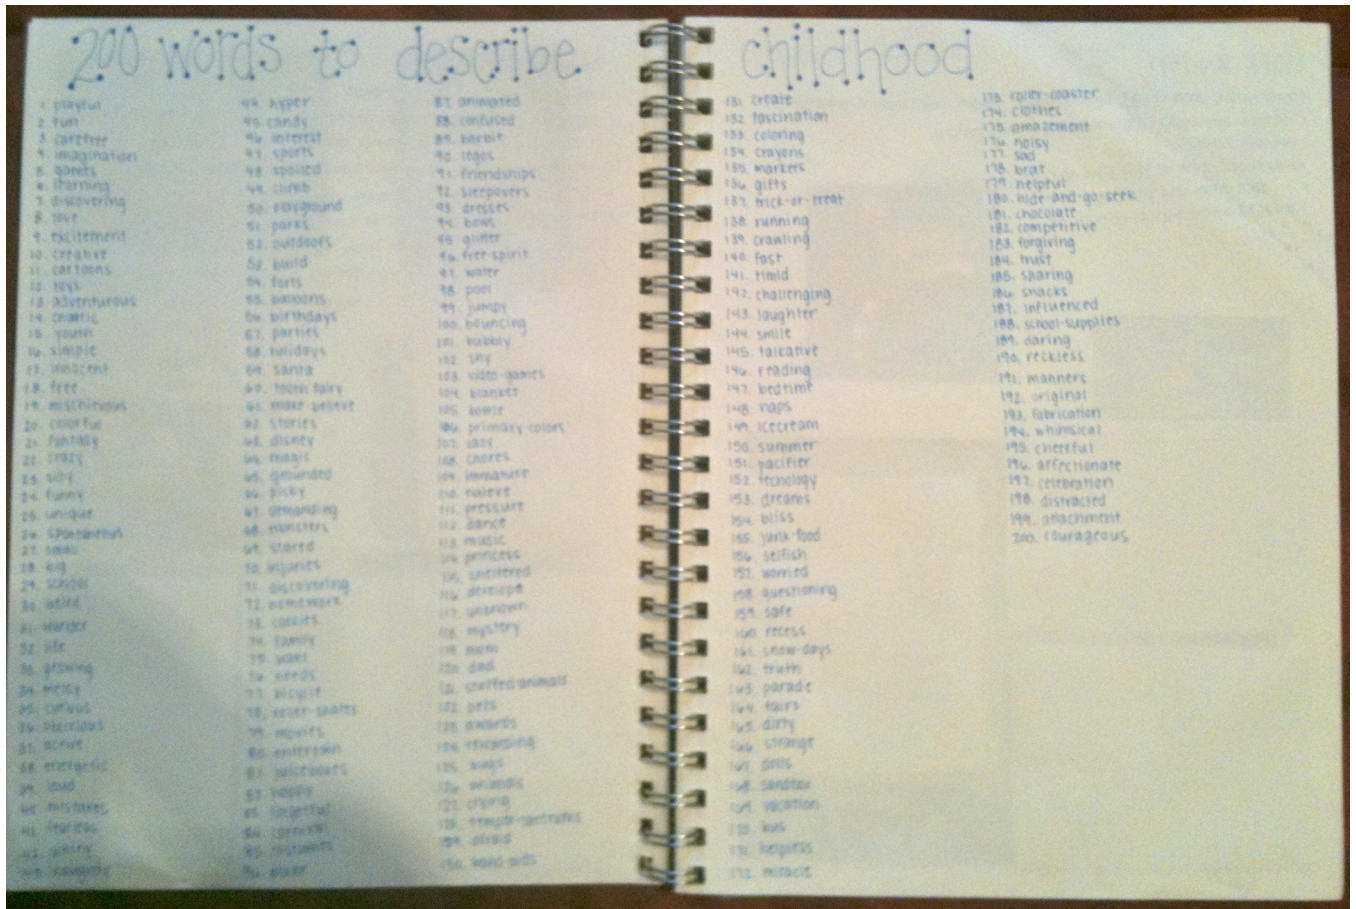 200 words to describe childhood
1. playful
2. fun
3. carefree
4. imagination
5. games
6. learning
7. discovering
8. love
9. excitement
10. creative
11. cartoons
12. toys
13. adventurous
14. chaotic
15. youth
16. simple
17. innocent
18. free
19. mischievous
20. colorful
21. fantasy
22. crazy
23. silly
24. funny
25. unique
26. spontaneous
27. small
28. big
29. school
30. weird
31. wonder
32. life
33. growing
34. messy
35. curious
36. precious
37. active
38. energetic
39. loud
40. mistakes
41. fearless
42. whiny
43. naughty
44. hyper
45. candy
46. interest
47. sports
48. spoiled
49. climb
50. playground
51. parks
52. outdoors
53. build
54. forts
55. balloons
56. birthdays
57. parties
58. holidays
59. santa
60. tooth fairy
61. make-believe
62. stories
63. disney
64. magic
65. grounded
66. picky
67. demanding
68. monsters
69. scared
70. injuries
71. discovering
72. homework
73. cookies
74. family
75. want
76. needs
77. bicycle
78. roller-skates
79. movies
80. entertain
81. juiceboxes
82. happy
83. forgetful
84. carnival
85. costumes
86.
87. animated
88. confused
89. barbie
90. legos
91. friendships
92. sleepovers
93. dresses
94. bows
95. glitter
96. free-spirit
97. water
98. pool
99. jumpy
100. bouncing
101. bubbly
102. shy
103. video-games
104. blanket
105. bottle
106. primary-colors
107. lazy
108. chores
109. immature
110. naieve
111. pressure
112. dance
113. music
114. princess
115. sheltered
116. develope
117. unknown
118. mystery
119. mom
120. dad
121. stuffed-animals
122. pets
123. awards
124.
125. bugs
126. animals
127. crying
128. temper-tantrums
129. afraid
130. band-aids
131. create
132. fascination
133. coloring
134. crayons
135. markers
136. gifts
137. trick-or-treat
138. running
139. crawling
140. fast
141. timid
142. challenging
143. laughter
144. smile
145. talkative
146. reading
147. bedtime
148. naps
149. icecream
150. summer
151. pacifier
152. tecnology
153. dreams
154. bliss
155. junk-food
156. selfish
157. worried
158. questioning
159. safe
160. recess
161. snow-days
162. truth
163. parade
164. fairs
165. dirty
166. strange
167. dolls
168. sandbox
169. vacation
170. bus
171. helpless
172. miracle
173. roller-coaster
174. clothes
175. amazement
176. noisy
177. sad
178. brat
179. helpful
180. hide-and-go-seek
181. chocolate
182. competitive
183. forgiving
184. trust
185. sharing
186. snacks
187. influenced
188. school-supplies
189. daring
190. reckless
191. manners
192. original
193. fabrication
194. whimsical
195. cheerful
196. affectionate
197. celebration
198. distracted
199. attachment
200. courageous